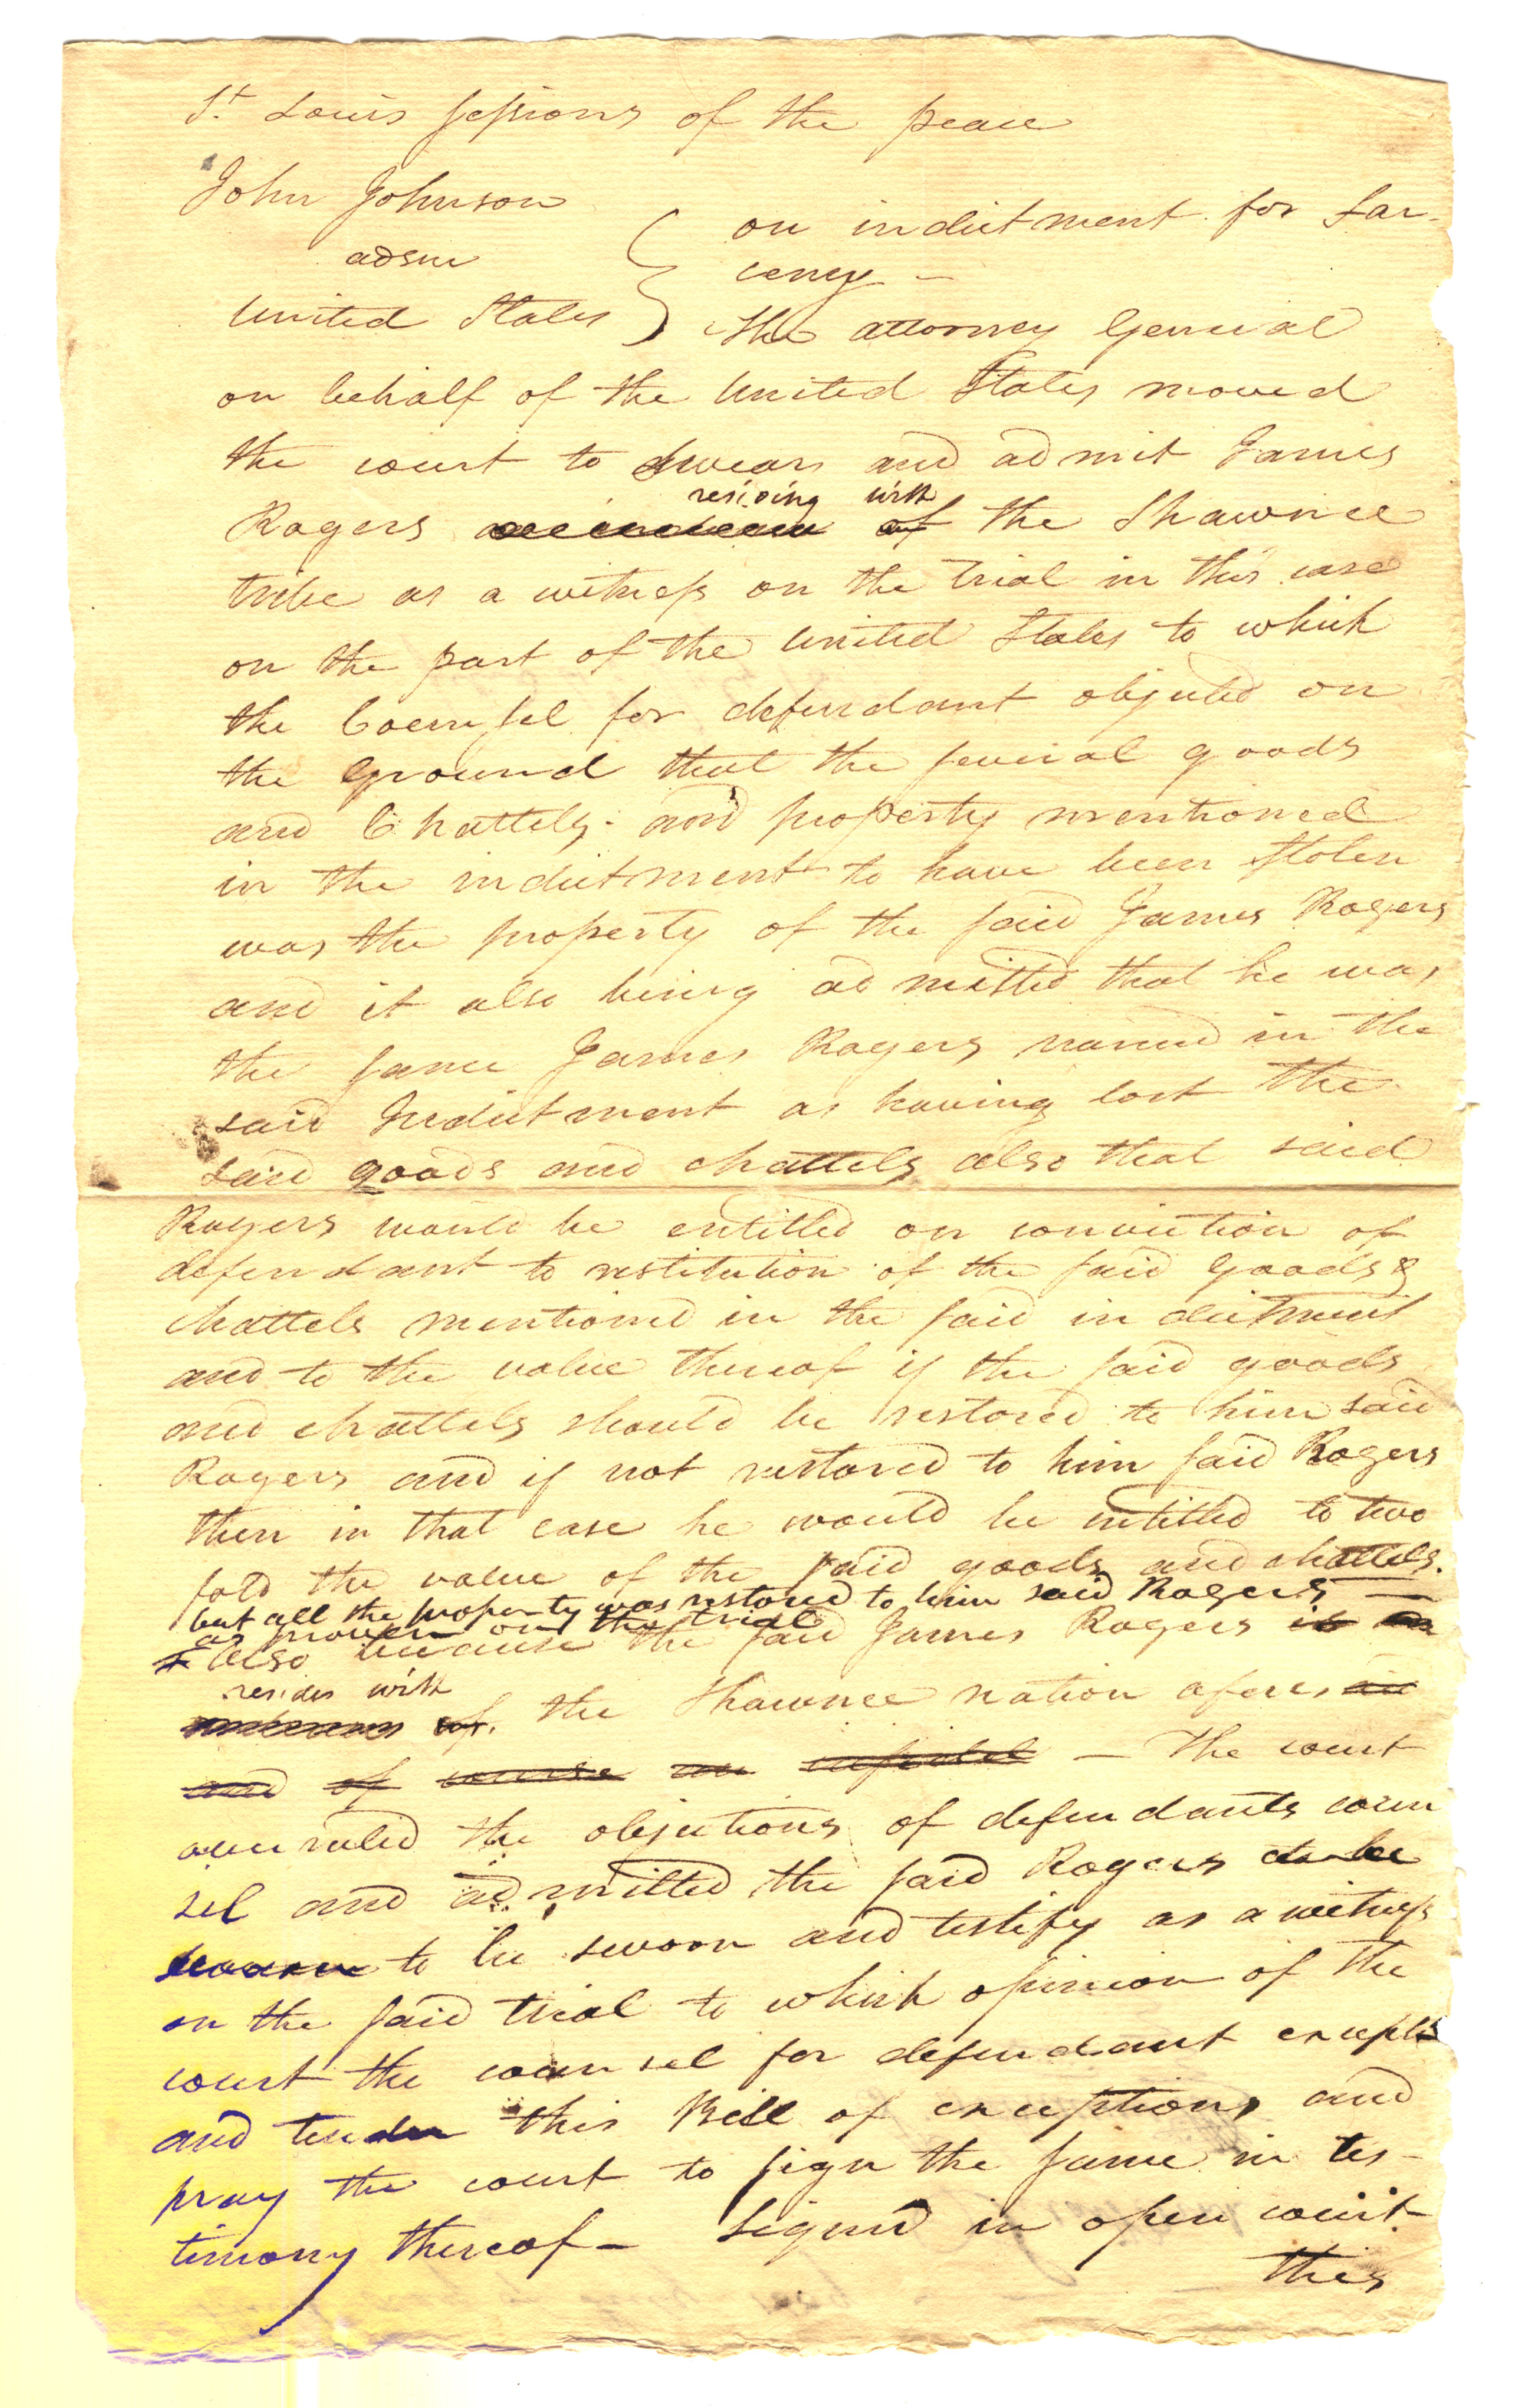 St. Louis sessions of the peace
John Johnson
adsm
United States
on indictment for Lar-
ceny -
The attorney General
on behalf of the United States moved
the court to swear and admit James
residing with
Rogers of the Shawnee
tribe as a witness on the trial in this case
on the part of the United States to which
the Counsel for defendant objected on
the ground that the several goods
and Chattels and property mentioned
in the indictment to have been stolen
was the property of the said James Rogers
and it also being admitted that he was
the same James Rogers named in the
said Indictment as having lost the
said goods and chattels also that said
Rogers would be entitled on conviction of
defendant to restitution of the said goods &
chattels mentioned in the said indictment
and to the value thereof if the said goods
and chattels should be restored to him said
Rogers and if not restored to him said Rogers
then in that case he would be intitled to two
fold the value of the said goods and chattels.
but all the property was restored to him said Rogers —
as proven on the trial
& also because the said James Rogers is an
resides with
of the Shawnee nation afores aid
and of course an infidel — The court
overruled the objections of defendants coun
sel and admitted the said Rogers to be
sworn to be sworn and testify as a witness
on the said trial to which opinion of the
court the counsel for defendant excepts
and tender this Bill of exceptions and
pray the court to sign the same in tes-
timony thereof - Signed in open court
this